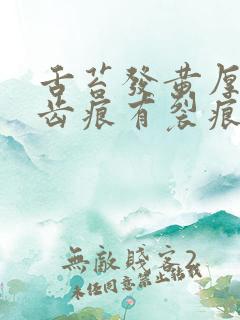 舌苔發黃厚
齒痕有裂痕
無敵賤客2
未經同意禁止轉載